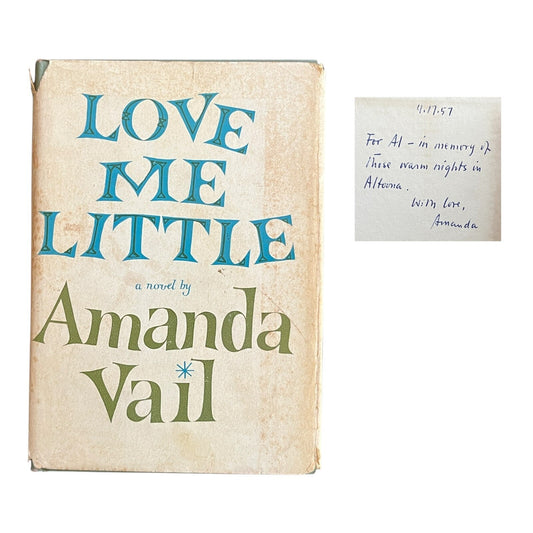 LOVE
ME
LITTLE
a novel by
Amanda
Vail
4.17.57
For Al – in memory of
those warm nights in
Altoona.
With love,
Amanda